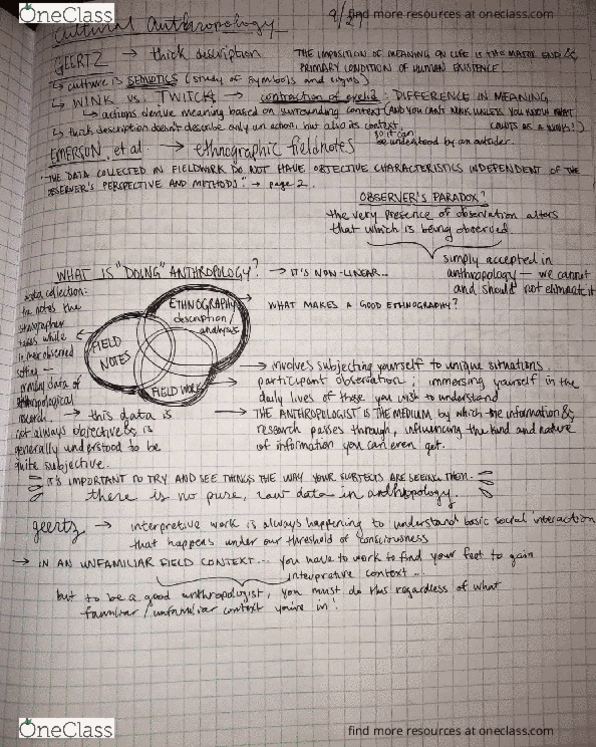 OneClass
find more resources at oneclass.com
Cultural Anthropology
GEERTZ → thick description
THE IMPOSITION OF MEANING ON LIFE IS THE MAJOR END &
PRIMARY CONDITION OF HUMAN EXISTENCE!
↳ culture is SEMIOTICS (study of symbols and signs)
↳ WINK vs. TWITCH → contraction of eyelid: DIFFERENCE IN MEANING
↳ actions derive meaning based on surrounding context (AND YOU CAN'T WINK UNLESS YOU KNOW WHAT
COUNTS AS A WINK!)
↳ thick description doesn't describe only an action, but also its context,
so it can
be understood by an outsider.
EMERSON, et al. → ethnographic fieldnotes
"THE DATA COLLECTED IN FIELDWORK DO NOT HAVE OBJECTIVE CHARACTERISTICS INDEPENDENT OF THE
OBSERVER'S PERSPECTIVE AND METHODS." → page 2.
OBSERVER'S PARADOX?
the very presence of observation alters
that which is being observed
simply accepted in
anthropology — we cannot
and should not eliminate it
WHAT IS "DOING" ANTHROPOLOGY? → IT'S NON-LINEAR...
data collection:
the notes the
ethnographer
takes while
in their observed
setting —
primary data of
anthropological
research.
→ this data is
not always objective & is
generally understood to be
quite subjective.
ETHNOGRAPHY
description/
analysis
FIELD
NOTES
FIELD WORK
WHAT MAKES A GOOD ETHNOGRAPHY?
→ involves subjecting yourself to unique situations.
→ participant observation; immersing yourself in the
daily lives of those you wish to understand
→ THE ANTHROPOLOGIST IS THE MEDIUM by which the information &
research passes through, influencing the kind and nature
of information you can even get.
IT'S IMPORTANT TO TRY AND SEE THINGS THE WAY YOUR SUBJECTS ARE SEEING THEM.
there is no pure, raw data in anthropology.
geertz → interpretive work is always happening to understand basic social interaction
that happens under our threshold of consciousness
→ IN AN UNFAMILIAR FIELD CONTEXT... you have to work to find your feet to gain
interpretive context...
but to be a good anthropologist, you must do this regardless of what
familiar/unfamiliar context you're in!
OneClass
find more resources at oneclass.com